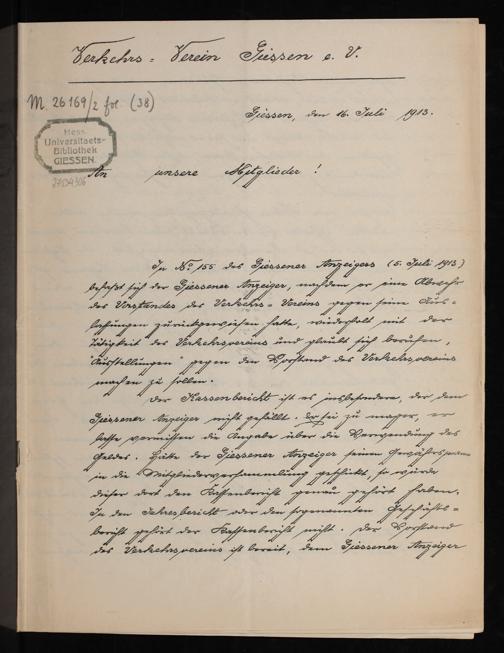 Verkehrs = Verein Giessen e. V.
M. 26169/2 fol. (38)
Giessen, den 16. Juli 1913.
Hess.
Universitaets-
Bibliothek
GIESSEN.
An unsere Mitglieder!
In No. 155 des Giessener Anzeigers (5. Juli 1913)
befaßt sich der Giessener Anzeiger, nachdem er eine Abwehr
des Vorstandes des Verkehrs = Vereins gegen seine Aus =
lassungen zurückgewiesen hatte, wiederholt mit der
Tätigkeit des Verkehrsvereins und glaubt sich berufen,
"Ausstellungen" gegen den Vorstand des Verkehrsvereins
machen zu sollen.
Der Kassenbericht ist es insbesondere, der dem
Giessener Anzeiger nicht gefällt. Er sei zu mager, er
lasse vermissen die Angabe über die Verwendung des
Geldes. Hätte der Giessener Anzeiger seinen Gewährsmann
in die Mitgliederversammlung geschickt, so würde
dieser dort den Kassenbericht genau gehört haben.
In den Jahresbericht oder den sogenannten Geschäfts =
bericht gehört der Kassenbericht nicht. Der Vorstand
des Verkehrsvereins ist bereit, dem Giessener Anzeiger